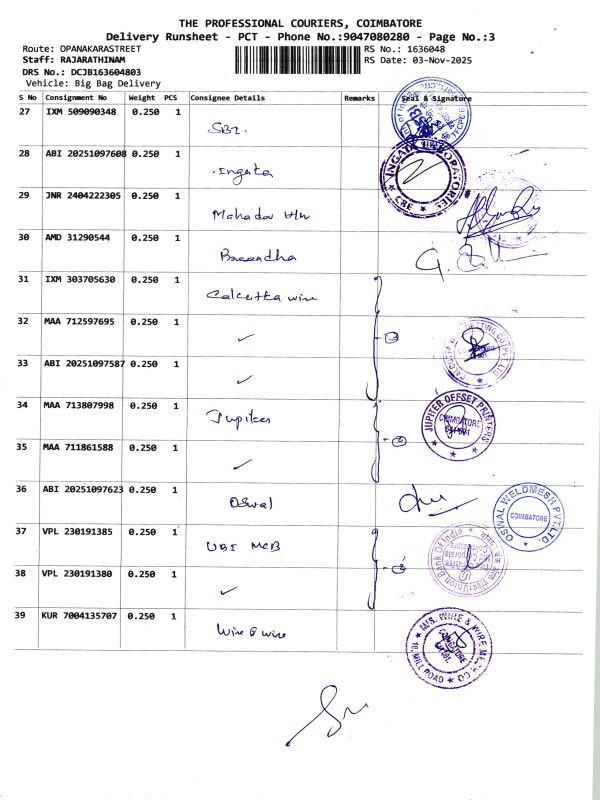 THE PROFESSIONAL COURIERS, COIMBATORE
Delivery Runsheet - PCT - Phone No.:9047080280 - Page No.:3
Route: OPANAKARASTREET
RS No.: 1636048
Staff: RAJARATHINAM
RS Date: 03-Nov-2025
DRS No.: DCJB163604803
Vehicle: Big Bag Delivery
S No Consignment No Weight PCS Consignee Details Remarks Seal & Signature
27 IXM 509090348 0.250 1
SBI.
28 ABI 20251097608 0.250 1
Ingata
INGATA LABORATORIES
CBE
29 JNR 2404222305 0.250 1
Mahadev
30 AMD 31290544 0.250 1
31 IXM 303705630 0.250 1
Calcutta wire
32 MAA 712597695 0.250 1
✓
33 ABI 20251097587 0.250 1
✓
34 MAA 713807998 0.250 1
Jupiter
JUPITER OFFSET PRINTERS
COIMBATORE
35 MAA 711861588 0.250 1
✓
36 ABI 20251097623 0.250 1
Oswal
OSWAL WELDMESH PVT.LTD.
COIMBATORE
37 VPL 230191385 0.250 1
UBI MCB
Union Bank Of India
38 VPL 230191380 0.250 1
✓
39 KUR 7004135707 0.250 1
Wire & wire
M/S. WIRE & WIRE MESH CO
MILL ROAD